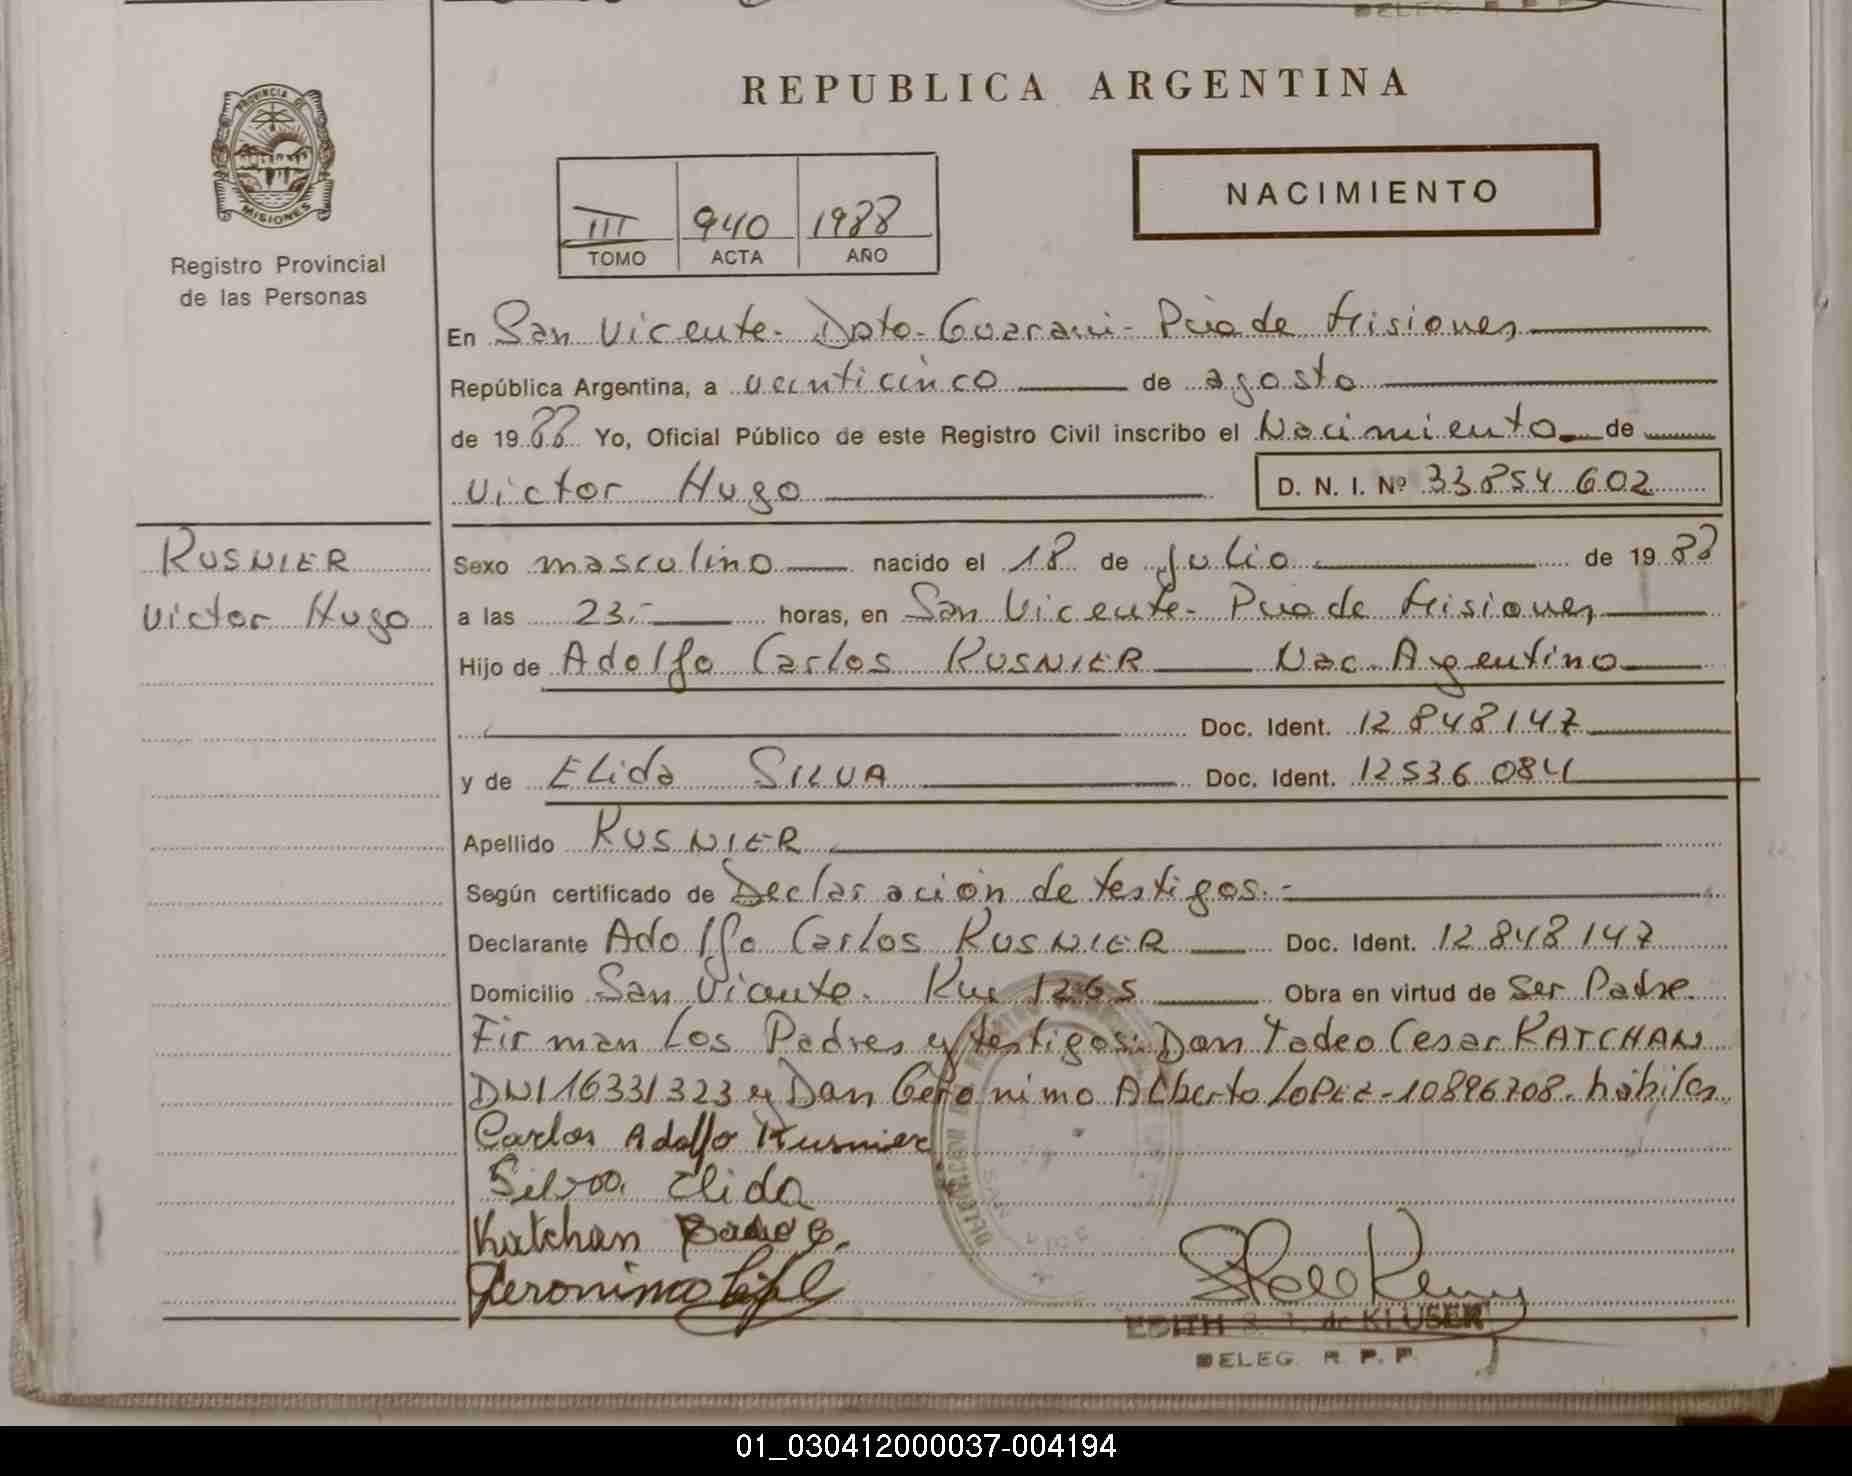 REPUBLICA ARGENTINA
PROVINCIA DE
MISIONES
Registro Provincial
de las Personas
III 940 1988
TOMO ACTA AÑO
NACIMIENTO
En San Vicente - Dpto - Guarani - Pcia de Misiones
República Argentina, a veinticinco de agosto
de 1988 Yo, Oficial Público de este Registro Civil inscribo el Nacimiento de
Victor Hugo D. N. I. Nº 33854 602
KUSNIER
Victor Hugo
Sexo masculino nacido el 18 de Julio de 1988
a las 23.- horas, en San Vicente - Pcia de Misiones
Hijo de Adolfo Carlos KUSNIER Nac. Argentino
Doc. Ident. 12848147
y de Elida SILVA Doc. Ident. 12536084
Apellido KUSNIER
Según certificado de Declaración de testigos.-
Declarante Adolfo Carlos KUSNIER Doc. Ident. 12848147
Domicilio San Vicente. Km 1265 Obra en virtud de Ser Padre.
Firman Los Padres y testigos: Don Tadeo Cesar KATCHAN
DNI 16331323 y Don Geronimo Alberto LOPEZ - 10896708. hábiles
Carlos Adolfo Kusnier
Silva Elida
Katchan
Geronimo
EDITH de KLUSER
DELEG. R. P. P.
01_030412000037-004194